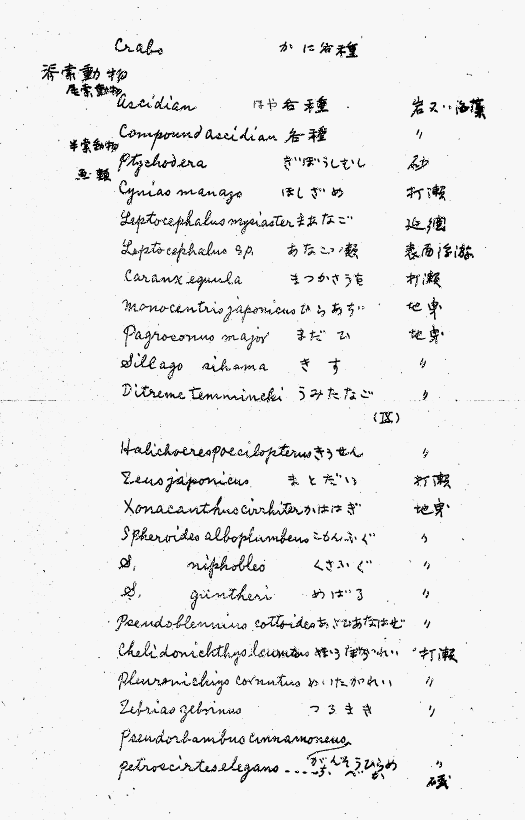 Crabs かに各種
脊索動物
尾索動物
Ascidian ほや各種 岩又ハ海藻
Compound ascidian 各種 〃
半索動物
Ptychodera ぎぼうしむし 砂
魚類
Cynias manazo ほしざめ 打瀬
Leptocephalus myriaster まあなご 延縄
Leptocephalus sp. あなご類 表面浮游
Caranx equula まつかさうを 打瀬
Monocentris japonicus ひらあぢ 地曳
Pagrosomus major まだひ 地曳
Sillago sihama きす 〃
Ditreme temmincki うみたなご 〃
(IX)
Halichoeres poecilopterus きうせん 〃
Zeus japonicus まとだい 打瀬
Xonacanthus cirrhifer かははぎ 地曳
Spheroides alboplumbeus こもんふぐ 〃
S. niphobles くさふぐ 〃
S. güntheri めばる 〃
Pseudoblennius cottoides あさひあなはぜ 〃
Chelidonichthys 打瀬
Pleuronichiys cornutus めいたがれい 〃
Zebrias zebrinus つるまき 〃
Pseudorhombus cinnamoneus
がんぞうひらめ 〃
petroscirtes elegans ----